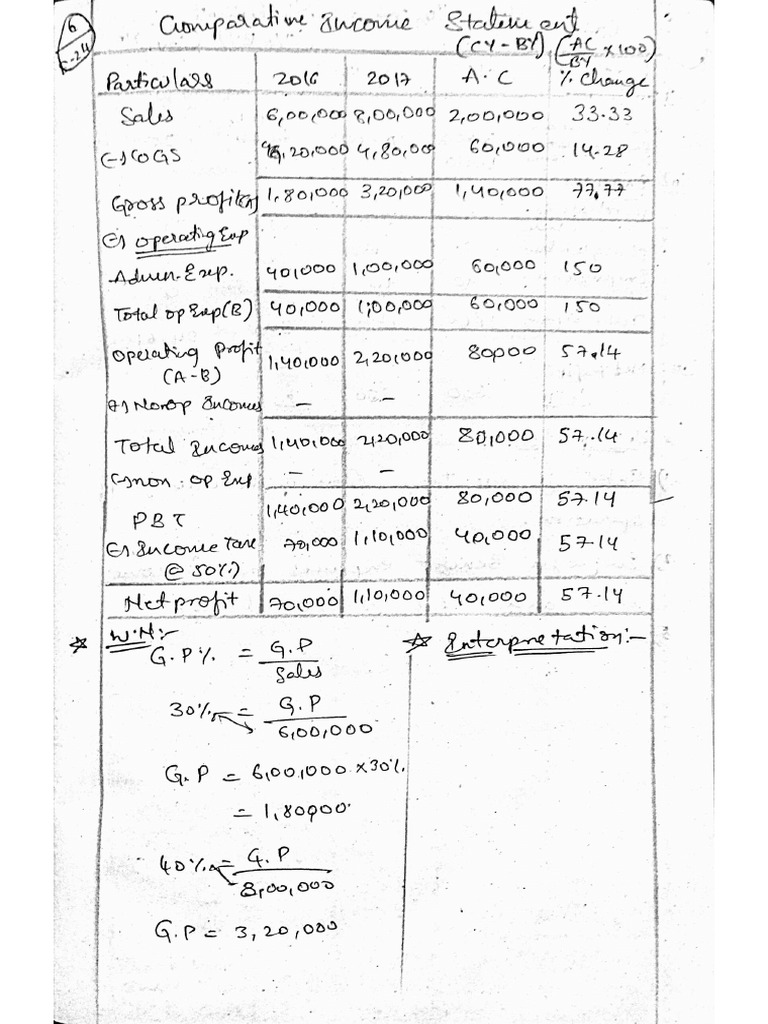 6
C-24
Comparative Income Statement
(CY - BY) (AC/BY × 100)
Particulars 2016 2017 A.C % Change
Sales 6,00,000 8,00,000 2,00,000 33.33
(-) COGS 4,20,000 4,80,000 60,000 14.28
Gross profit(A) 1,80,000 3,20,000 1,40,000 77.77
(-) Operating Exp
Admn. Exp. 40,000 1,00,000 60,000 150
Total op Exp(B) 40,000 1,00,000 60,000 150
Operating Profit 1,40,000 2,20,000 80000 57.14
(A-B)
(+) Non op Incomes - -
Total Incomes 1,40,000 2,20,000 80,000 57.14
(-) non. op Exp - -
PBT 1,40,000 2,20,000 80,000 57.14
(-) Income Tax 70,000 1,10,000 40,000 57.14
@ 50%)
Net profit 70,000 1,10,000 40,000 57.14
W.N:-
G.P% = G.P
Sales
30% = G.P
6,00,000
G.P = 6,00,000 × 30%
= 1,80000
40% = G.P
8,00,000
G.P = 3,20,000
Interpretation:-